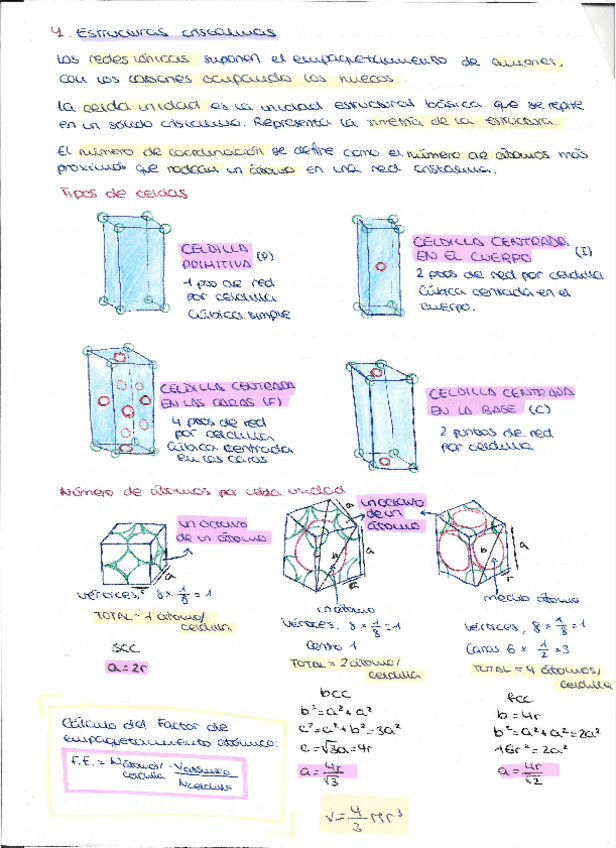 4. Estructuras cristalinas
Las redes iónicas suponen el empaquetamiento de aniones,
con los cationes ocupando los huecos.
La celda unidad es la unidad estructural básica que se repite
en un sólido cristalino. Representa la simetría de la estructura.
El número de coordinación se define como el número de átomos más
próximos que rodean un átomo en una red cristalina.
Tipos de celdas
CELDILLA (P)
PRIMITIVA
1 pto de red
por celdilla
Cúbica simple
CELDILLA CENTRADA
EN EL CUERPO (I)
2 ptos de red por celdilla
Cúbica centrada en el
cuerpo.
CELDILLA CENTRADA
EN LAS CARAS (F)
4 ptos de red
por celdilla
Cúbica centrada
en las caras
CELDILLA CENTRADA
EN LA BASE (C)
2 puntos de red
por celdilla
Número de átomos por celda unidad
un octavo
de un átomo
a
vértices, 8 × 1/8 = 1
TOTAL = 1 átomo/
celdilla
scc
a = 2r
un octavo
de un
átomo
a
a
b
c
un átomo
vértices, 8 × 1/8 = 1
Centro 1
TOTAL = 2 átomo/
celdilla
bcc
b² = a² + a²
c² = a² + b² = 3a²
c = √3a = 4r
a = 4r/√3
a
b
r
medio átomo
vértices, 8 × 1/8 = 1
Caras 6 × 1/2 = 3
TOTAL = 4 átomos/
celdilla
fcc
b = 4r
b² = a² + a² = 2a²
16r² = 2a²
a = 4r/√2
Cálculo del Factor de
empaquetamiento atómico:
F.E. = Nátomos/celdilla · Vátomo/Vceldilla
V = 4/3 πr³